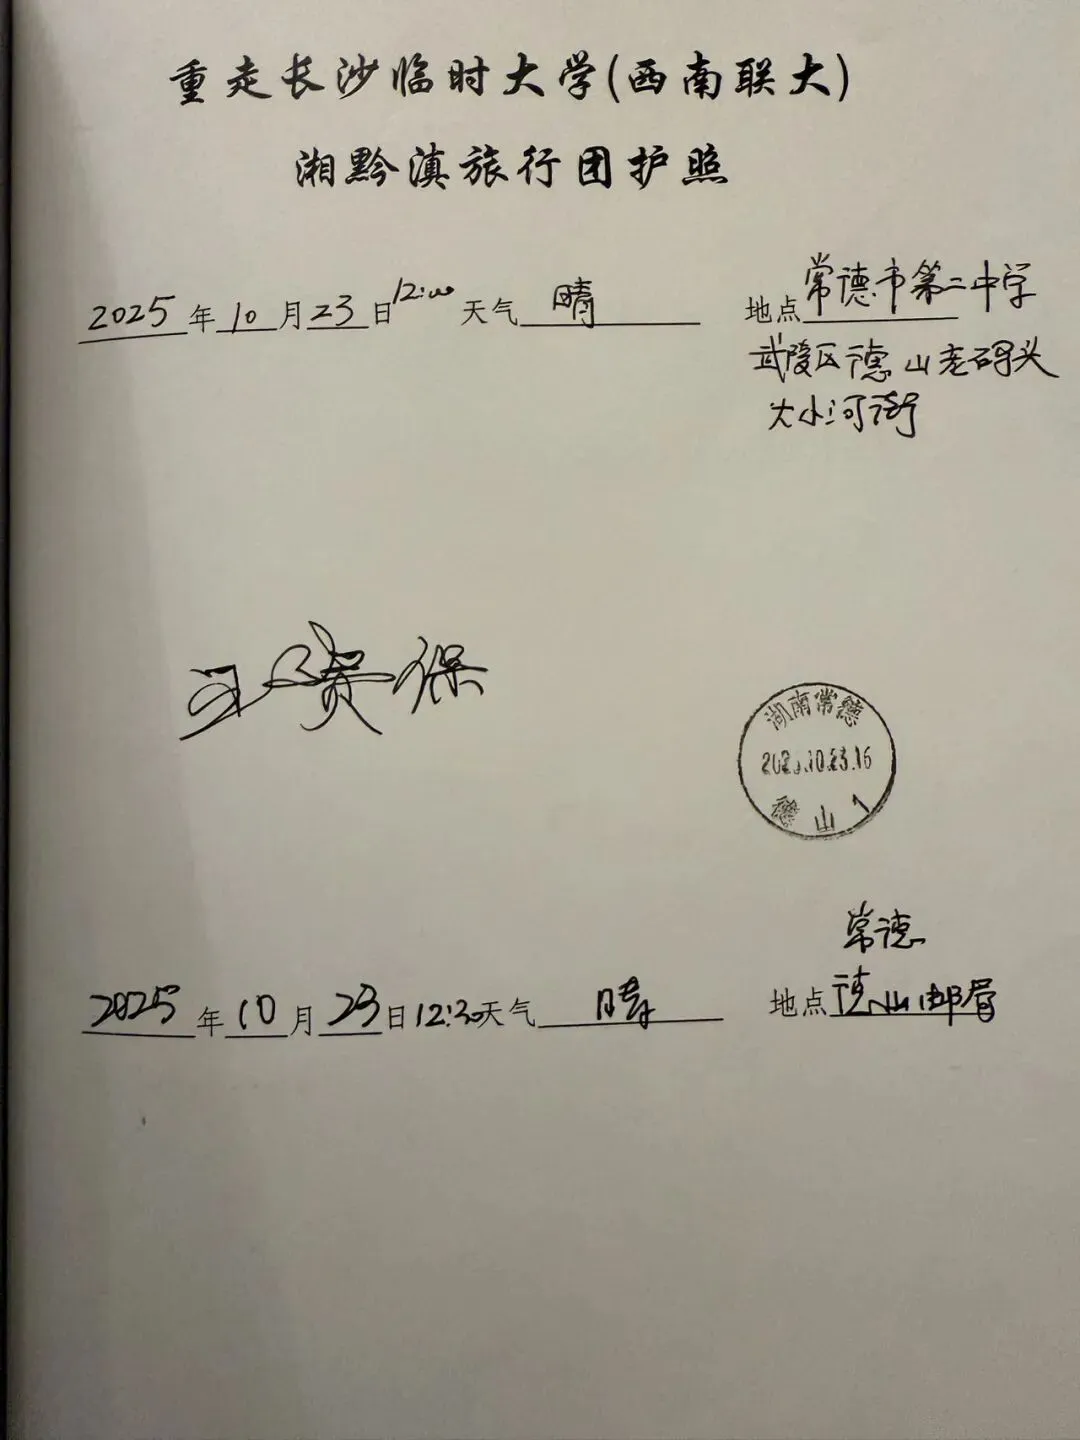 重走长沙临时大学(西南联大)
湘黔滇旅行团护照
2025年10月23日12:00 天气 晴 地点 常德市第二中学
武陵区德山老码头
大小河街
湖南常德
2025.10.23.16
德山 1
常德
2025年10月23日12:30天气 晴 地点 德山邮局